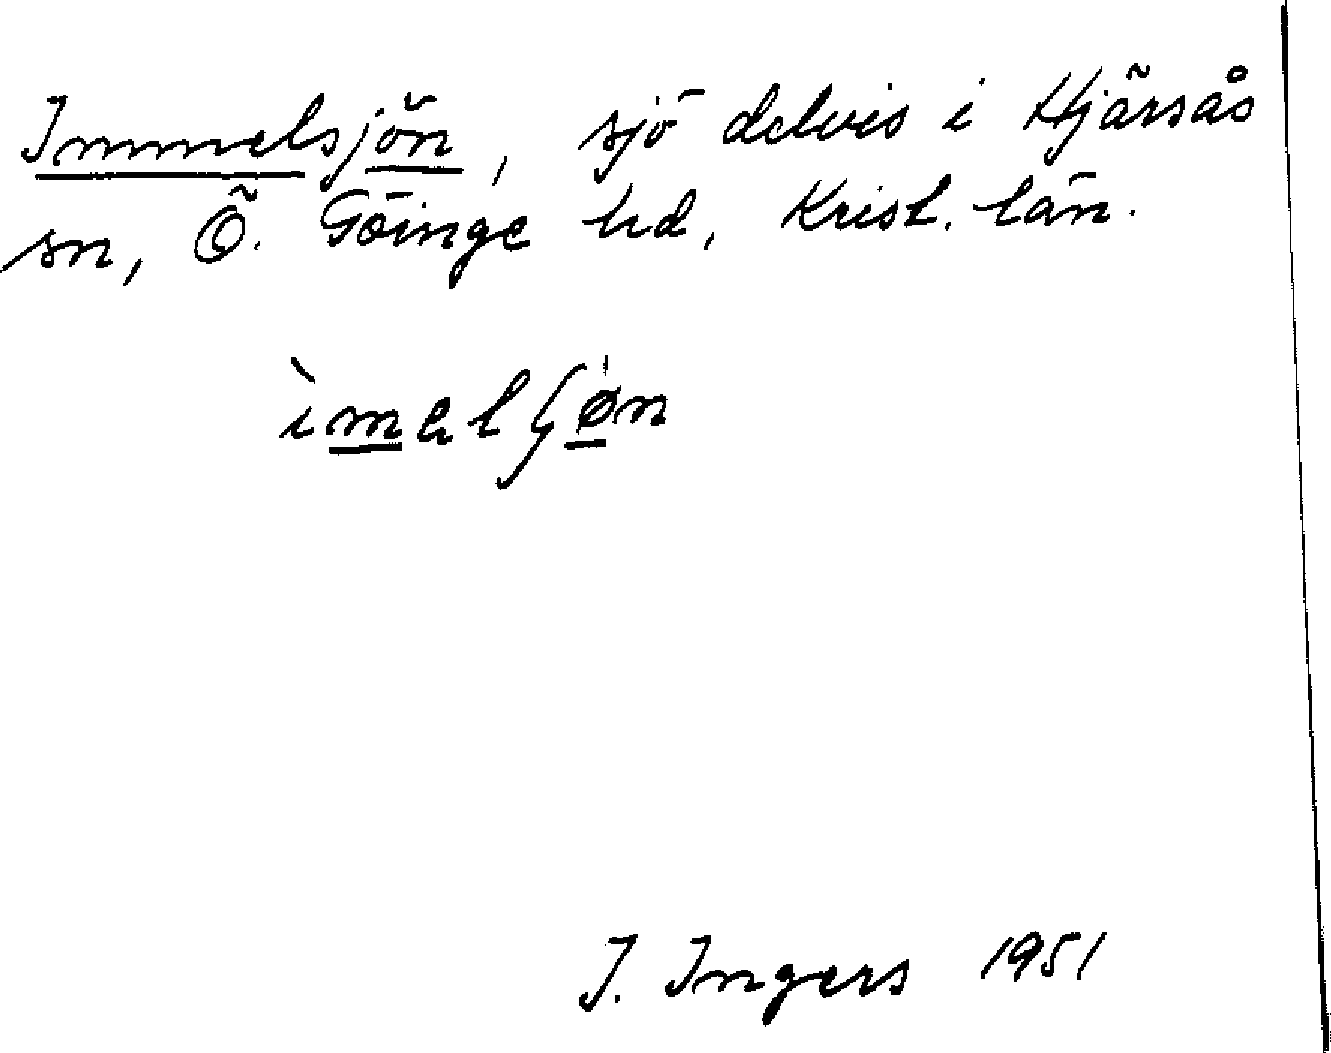 Immelsjön, sjö delvis i Hjärsås
sn, Ö. Göinge hd, Krist. län.
I. Ingers 1951